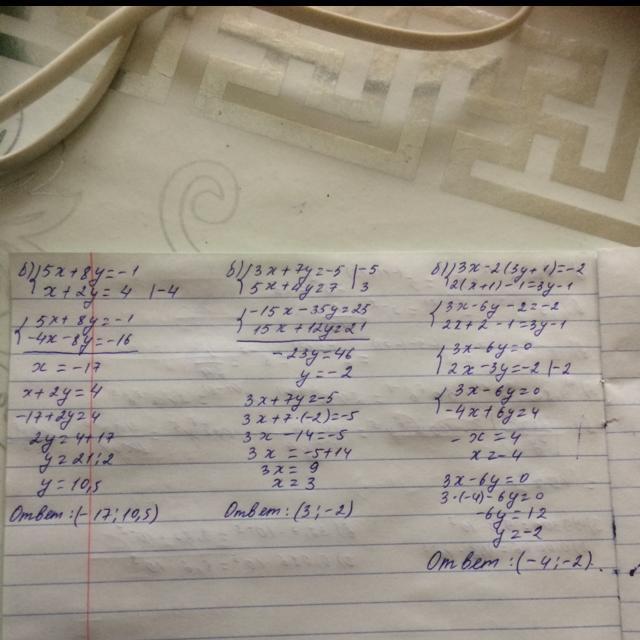 б) {5x+8y=-1
x+2y=4 |-4
{5x+8y=-1
-4x-8y=-16
x=-17
x+2y=4
-17+2y=4
2y=4+17
y=21:2
y=10,5
Ответ:(-17;10,5)
б) {3x+7y=-5 |-5
5x+4y=7 | 3
{-15x-35y=25
15x+12y=21
-23y=46
y=-2
3x+7y=-5
3x+7·(-2)=-5
3x-14=-5
3x=-5+14
3x=9
x=3
Ответ:(3;-2)
б) {3x-2(3y+1)=-2
2(x+1)-1=3y-1
{3x-6y-2=-2
2x+2-1=3y-1
{3x-6y=0
2x-3y=-2 |-2
{3x-6y=0
-4x+6y=4
-x=4
x=-4
3x-6y=0
3·(-4)-6y=0
-6y=12
y=-2
Ответ:(-4;-2).